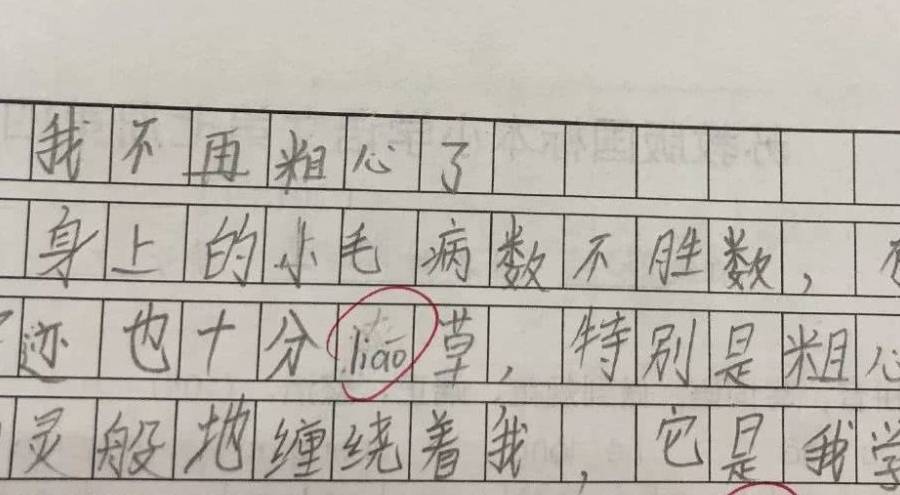 我不再粗心了
身上的小毛病数不胜数，
迹也十分liáo草，特别是粗心
灵般地缠绕着我，它是我学